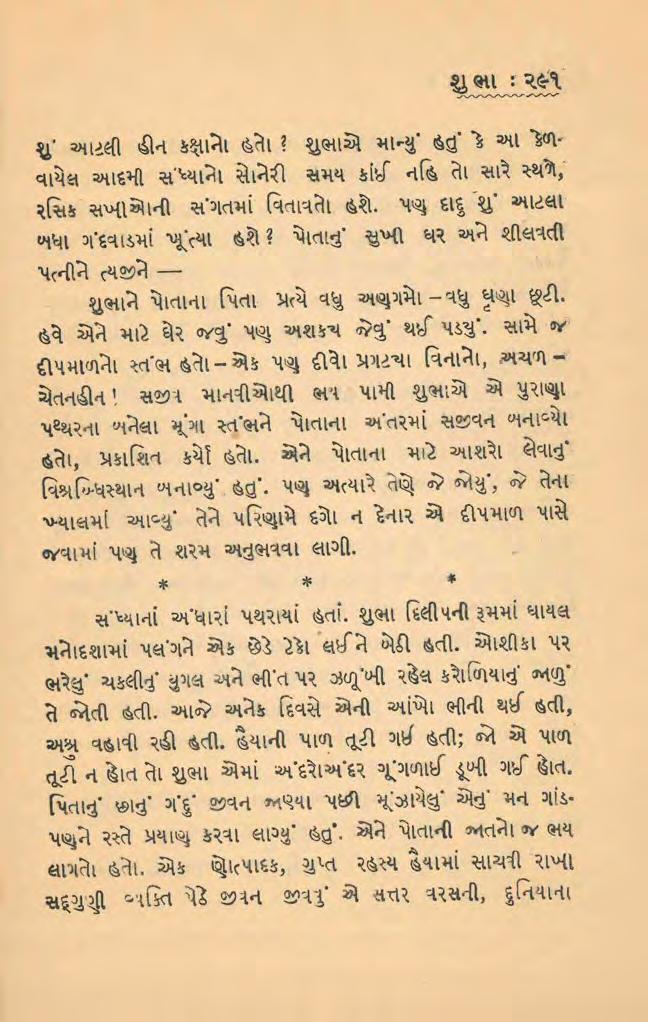 શુભા : ૨૯૧
શું આટલી હીન કક્ષાનો હતો ? શુભાએ માન્યું હતું કે આ કેળ-
વાયેલ આદમી સંધ્યાનો સોનેરી સમય કાંઈ નહિ તો સારે સ્થળે,
રસિક સખીઓની સંગતમાં વિતાવતો હશે. પણ દાદુ શું આટલા
બધા ગંદવાડમાં ખૂંત્યા હશે ? પોતાનું સુખી ઘર અને શીલવતી
પત્નીને ત્યજીને —
શુભાને પોતાના પિતા પ્રત્યે વધુ અણગમો – વધુ ઘૃણા છૂટી.
હવે એને માટે ઘેર જવું પણ અશકય જેવું થઈ પડયું. સામે જ
દીપમાળનો સ્તંભ હતો – એક પણ દીવો પ્રગટયા વિનાનો, અચળ –
ચેતનહીન ! સજીવ માનવીઓથી ભય પામી શુભાએ એ પુરાણા
પથ્થરના બનેલા મૂંગા સ્તંભને પોતાના અંતરમાં સજીવન બનાવ્યો
હતો, પ્રકાશિત કર્યો હતો. એને પોતાના માટે આશરો લેવાનું
વિશ્રબ્ધિસ્થાન બનાવ્યું હતું. પણ અત્યારે તેણે જે જોયું, જે તેના
ખ્યાલમાં આવ્યું તેને પરિણામે દગો ન દેનાર એ દીપમાળ પાસે
જવામાં પણ તે શરમ અનુભવવા લાગી.
* * *
સંધ્યાનાં અંધારાં પથરાયાં હતાં. શુભા દિલીપની રૂમમાં ઘાયલ
મનોદશામાં પલંગને એક છેડે ટેકો લઈને બેઠી હતી. ઓશીકા પર
ભરેલું ચકલીનું યુગલ અને ભીંત પર ઝળૂંબી રહેલ કરોળિયાનું જાળું
તે જોતી હતી. આજે અનેક દિવસે એની આંખો ભીની થઈ હતી,
અશ્રુ વહાવી રહી હતી. હૈયાની પાળ તૂટી ગઈ હતી; જો એ પાળ
તૂટી ન હોત તો શુભા એમાં અંદરોઅંદર ગૂંગળાઈ ડૂબી ગઈ હોત.
પિતાનું છાનું ગંદું જીવન જાણ્યા પછી મૂંઝાયેલું એનું મન ગાંડ-
પણને રસ્તે પ્રયાણ કરવા લાગ્યું હતું. એને પોતાની જાતનો જ ભય
લાગતો હતો. એક ણોત્પાદક, ગુપ્ત રહસ્ય હૈયામાં સાચવી રાખી
સદ્દગુણી વ્યક્તિ પેઠે જીવન જીવવું એ સત્તર વરસની, દુનિયાના